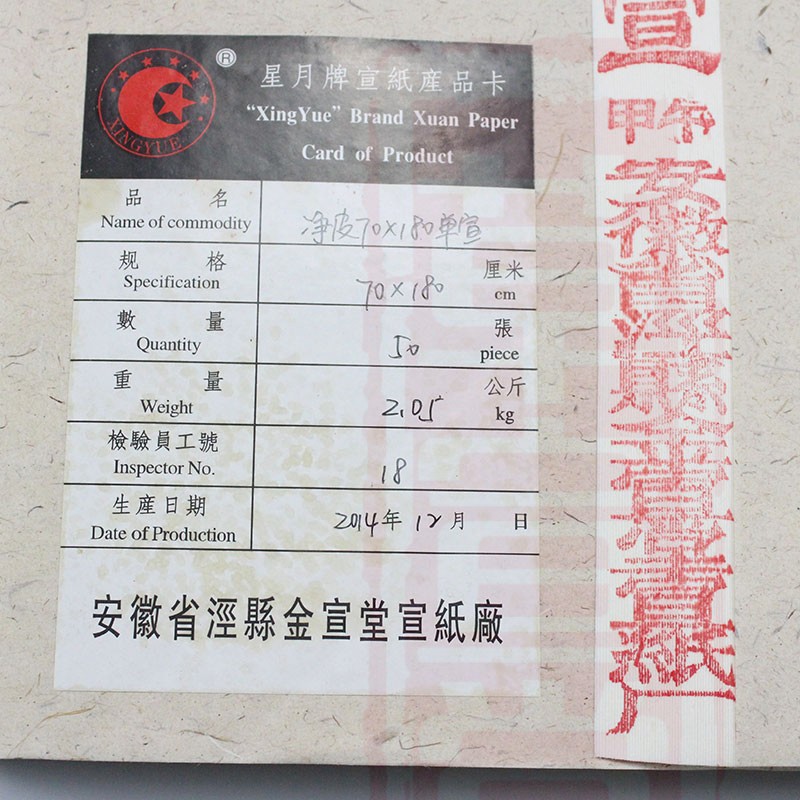 ®
XINGYUE
星月牌宣紙産品卡
“XingYue” Brand Xuan Paper
Card of Product
品 名
Name of commodity
净皮70×180单宣
规 格
Specification
70×180
厘米
cm
數 量
Quantity
50
張
piece
重 量
Weight
2.05
公斤
kg
檢驗員工號
Inspector No.
18
生産日期
Date of Production
2014年 12月 日
安徽省涇縣金宣堂宣紙廠
宣
甲午
安徽